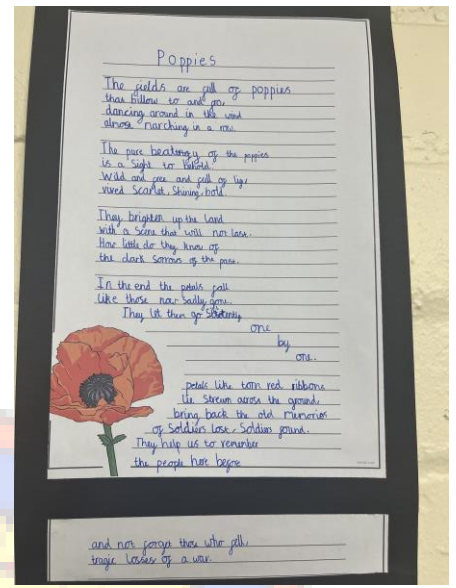 Poppies
The fields are full of poppies
that billow to and fro,
dancing around in the wind
almost marching in a row.
The pure beatuey of the poppies
is a sight to behold.
Wild and free and full of life,
vived Scarlet, Shining, bold.
They brighten up the land
with a scene that will not last.
How little do they know of
the dark sorrows of the past.
In the end the petals fall
like those now sadly gone.
They let them go
one
by
one.
petals like torn red ribbons
lie strewn across the ground,
bring back the old memories
of Soldiers lost, Soldiers found.
They help us to remember
the people here before
and not forget those who fell,
tragic losses of a war.